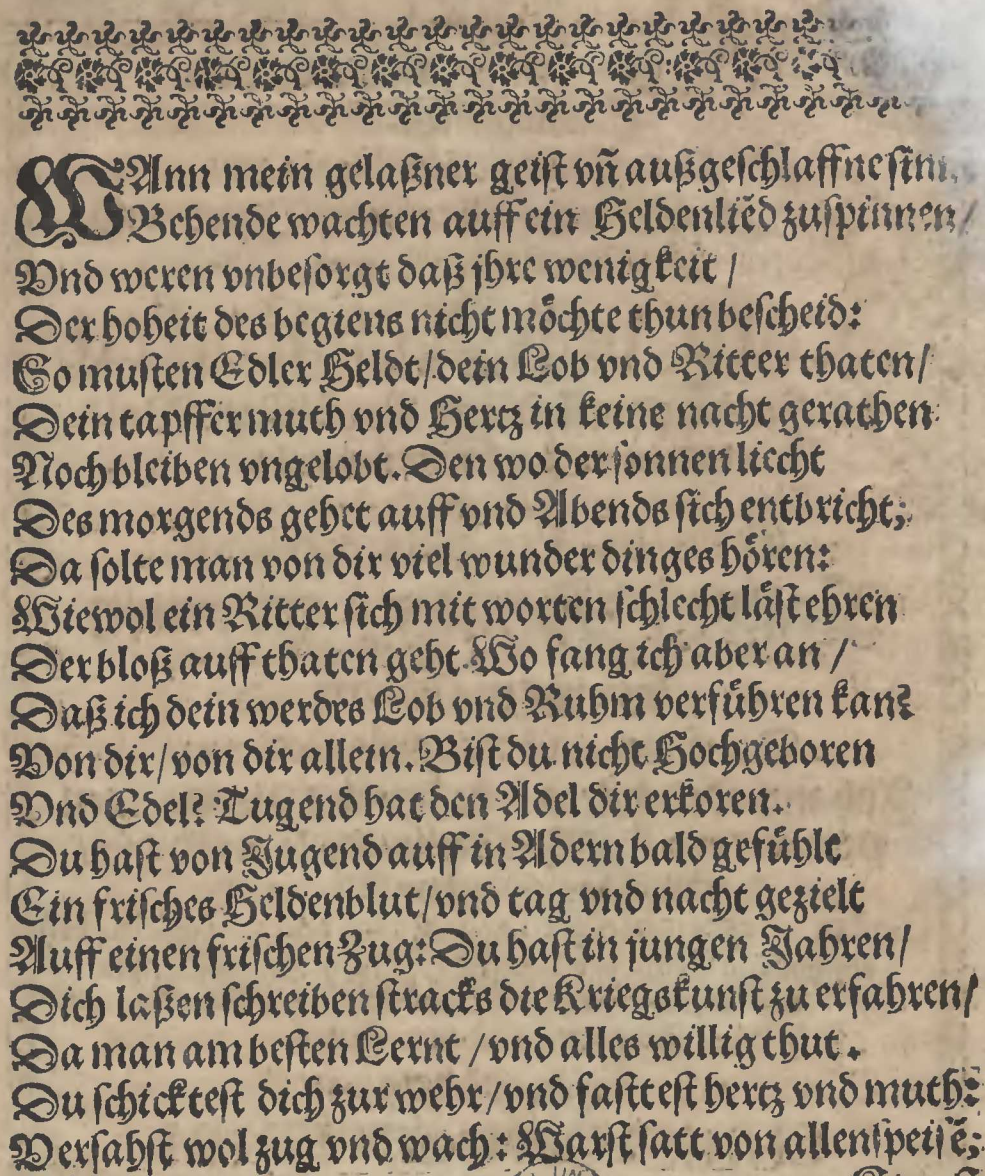 WAnn mein gelaßner geist vñ außgeschlaffne sinn
Behende wachten auff ein Heldenlied zuspinnen/
Vnd weren vnbesorgt daß jhre wenigkeit /
Der hoheit des begiens nicht möchte thun bescheid:
So musten Edler Heldt/ dein Lob vnd Ritter thaten/
Dein tapffer muth vnd Hertz in keine nacht gerathen:
Noch bleiben vngelobt. Den wo der sonnen liecht
Des morgends gehet auff vnd Abends sich entbricht;
Da solte man von dir viel wunder dinges hören:
Wiewol ein Ritter sich mit worten schlecht läst ehren
Der bloß auff thaten geht. Wo fang ich aber an /
Daß ich dein werdes Lob vnd Ruhm verführen kan?
Von dir/ von dir allein. Bist du nicht Hochgeboren
Vnd Edel? Tugend hat den Adel dir erkoren.
Du hast von Jugend auff in Adern bald gefühlt
Ein frisches Heldenblut/ vnd tag vnd nacht gezielt
Auff einen frischen Zug: Du hast in jungen Jahren/
Dich laßen schreiben stracks die Kriegskunst zu erfahren/
Da man am besten Lernt / vnd alles willig thut.
Du schicktest dich zur wehr/ vnd fasttest hertz vnd muth:
Versahst wol zug vnd wach: Warst satt von allen speisē;